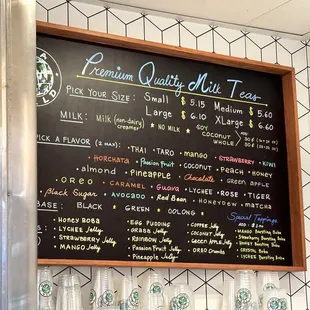 Premium Quality Milk Teas
Pick Your Size: Small $5.15 Medium $5.80
Large $6.10 XLarge $6.80
Milk: Milk (non-dairy creamer) * No Milk * Soy Coconut Whole
Pick a Flavor (2 max): Thai Taro mango Strawberry Kiwi
Horchata Passion Fruit Coconut Peach Honey
almond Pineapple Chocolate Green Apple
Oreo Caramel Guava Lychee Rose Tiger
Black Sugar Avocado Red Bean Honeydew matcha
Base: Black Green Oolong
Special Toppings
Honey Boba Egg Pudding Coffee Jelly
Lychee Jelly Grass Jelly Coconut Jelly
Strawberry Jelly Rainbow Jelly Green Apple Jelly
Mango Jelly Passion Fruit Jelly Oreo Crumbs
Pineapple Jelly
Mango Bursting Boba
Strawberry Bursting Boba
Honey Bursting Boba
Kiwi Bursting Boba
Lychee Bursting Boba